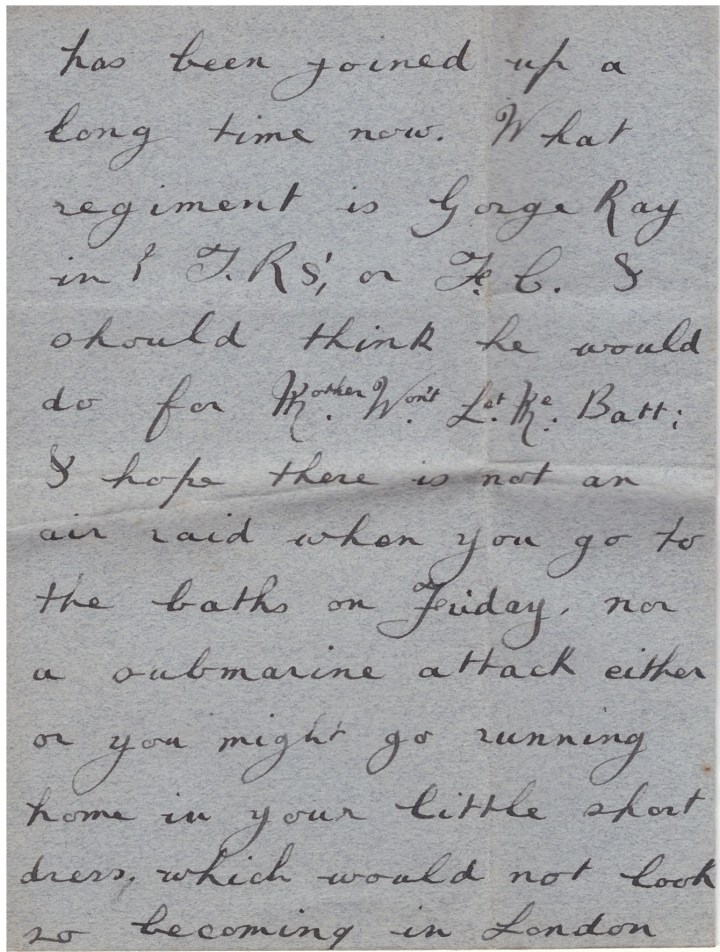 has been joined up a
long time now. What
regiment is Gorge Ray
in? T.R S', or F. C. I
should think he would
do for Mother. Won't. Let. Me. Batt:
I hope there is not an
air raid when you go to
the baths on Friday, nor
a submarine attack either
or you might go running
home in your little short
dress, which would not look
so becoming in London